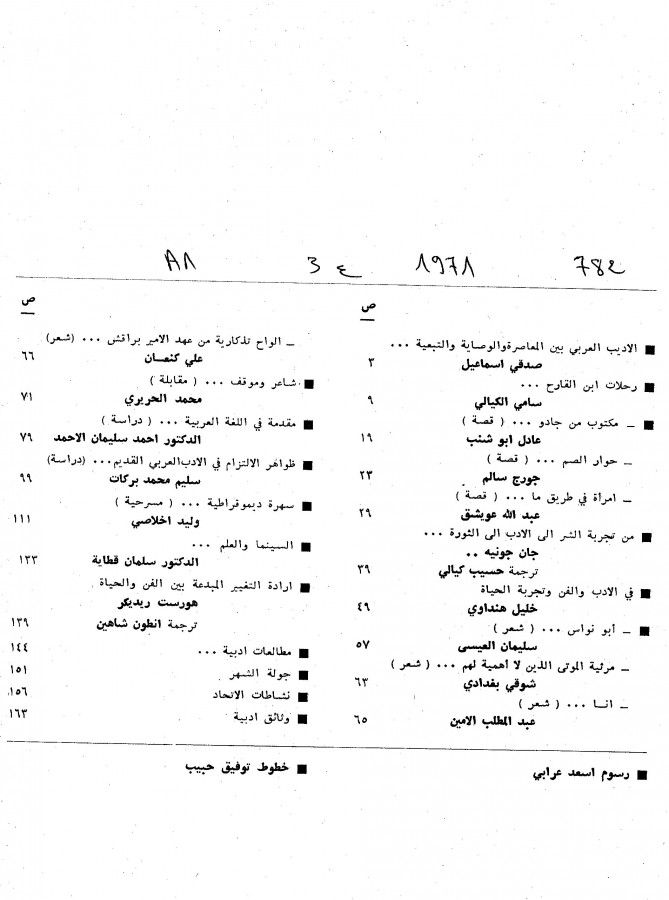 782 1971 ع 3 A1
ص
■ الاديب العربي بين المعاصرة والوصاية والتبعية ...
صدقي اسماعيل ٣
■ رحلات ابن القارح ...
سامي الكيالي ٩
■ – مكتوب من جادو ... ( قصة )
عادل ابو شنب ١٩
– حوار الصم ... ( قصة )
جورج سالم ٢٣
– امرأة في طريق ما ... ( قصة )
عبد الله عويشق ٢٩
■ من تجربة الشر الى الادب الى الثورة ...
جان جونيه ..
ترجمة حسيب كيالي ٣٩
■ في الادب والفن وتجربة الحياة
خليل هنداوي ٤٩
■ – أبو نواس ... ( شعر )
سليمان العيسى ٥٧
– مرثية الموتى الذين لا أهمية لهم ... ( شعر )
شوقي بغدادي ٦٣
– انـا ... ( شعر )
عبد المطلب الامين ٦٥
ص
– الواح تذكارية من عهد الامير براقش ... (شعر)
علي كنعـان ٦٦
■ شاعر وموقف ... ( مقابلة )
محمد الحريري ٧١
■ مقدمة في اللغة العربية ... ( دراسة )
الدكتور احمد سليمان الاحمد ٧٩
■ ظواهر الالتزام في الادب العربي القديم... (دراسة)
سليم محمد بركات ٩٩
■ سهرة ديموقراطية ... ( مسرحية )
وليد اخلاصي ١١١
■ السينما والعلم ...
الدكتور سلمان قطاية ١٣٣
■ ارادة التغيير المبدعة بين الفن والحياة
هورست ريديكر
ترجمة انطون شاهين ١٣٩
■ مطالعات ادبية ... ١٤٤
■ جولة الشهر ١٥١
■ نشاطات الاتحاد ١٥٦
■ وثائق ادبية ١٦٣
■ رسوم اسعد عرابي
■ خطوط توفيق حبيب